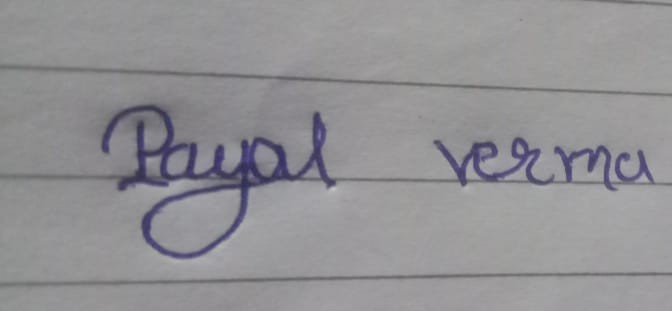 Payal verma